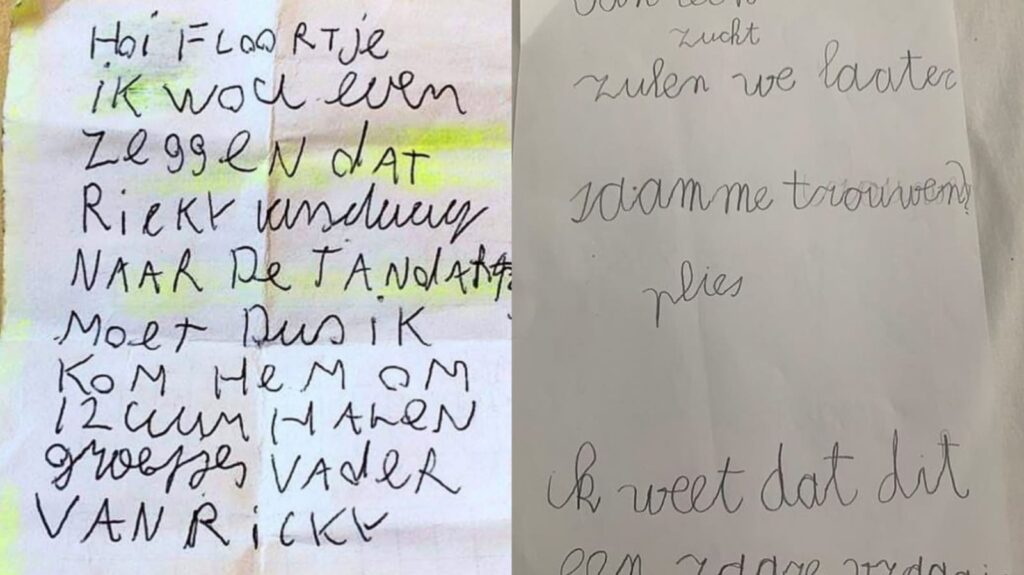 Hoi FLOORTje
ik wou even
zeggeN dAT
RickY vandaag
NAAR De TANdARts
Moet Dus iK
KoM HeM OM
12 uur HALEN
groetjes VADeR
VAN RickY
zucht
zulen we laater
sdamme trouwen?
plies
ik weet dat dit
een